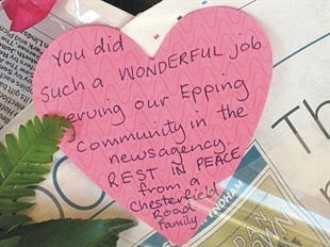 You did
such a WONDERFUL job
erving our Epping
community in the
newsagency.
REST IN PEACE
from a
Chesterfield
Road
Family
Th
NDHAM
DAWN